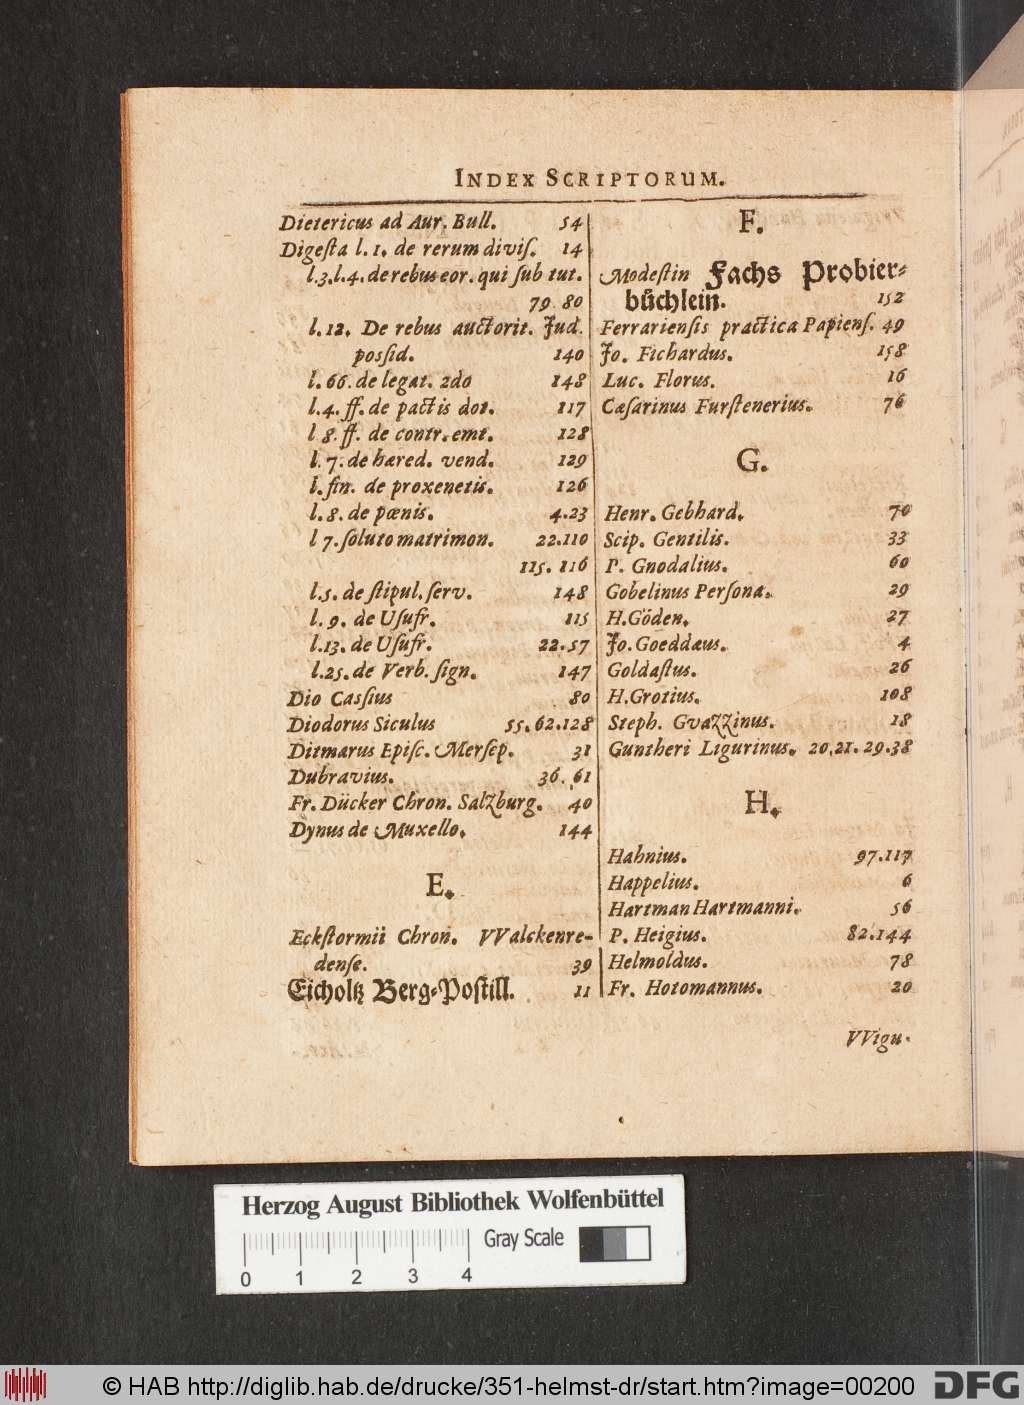 INDEX SCRIPTORUM.
Dietericus ad Aur. Bull. 54
Digeſta l. 1. de rerum diviſ. 14
l.3.l.4. de rebus eor. qui ſub tut.
79. 80
l. 12. De rebus auctorit. Jud.
poſſid. 140
l. 66. de legat. 2do 148
l. 4. ff. de pactis dot. 117
l 8. ff. de contr. emt. 128
l. 7. de hæred. vend. 129
l. fin. de proxenetis. 126
l. 8. de pœnis. 4.23
l 7. ſoluto matrimon. 22.110
115. 116
l. 5. de ſtipul. ſerv. 148
l. 9. de Uſufr. 115
l. 13. de Uſufr. 22.57
l. 25. de Verb. ſign. 147
Dio Caſſius 80
Diodorus Siculus 55.62.128
Ditmarus Epiſc. Merſep. 31
Dubravius. 36. 61
Fr. Dücker Chron. Salzburg. 40
Dynus de Muxello. 144
E.
Eckſtormii Chron. VValckenre-
denſe. 39
Eicholtz Berg-Poſtill. 11
F.
Modeſtin Fachs Probier-
büchlein. 152
Ferrarienſis practica Papienſ. 49
Jo. Fichardus. 158
Luc. Florus. 16
Cæſarinus Furſtenerius. 76
G.
Henr. Gebhard. 70
Scip. Gentilis. 33
P. Gnodalius. 60
Gobelinus Perſona. 29
H. Göden. 27
Jo. Goeddæus. 4
Goldaſtus. 26
H. Grotius. 108
Steph. Gvazzinus. 18
Guntheri Ligurinus. 20.21.29.38
H.
Hahnius. 97.117
Happelius. 6
Hartman Hartmanni. 56
P. Heigius. 82.144
Helmoldus. 78
Fr. Hotomannus. 20
VVigu-
Herzog August Bibliothek Wolfenbüttel
Gray Scale
0 1 2 3 4
© HAB http://diglib.hab.de/drucke/351-helmst-dr/start.htm?image=00200
DFG